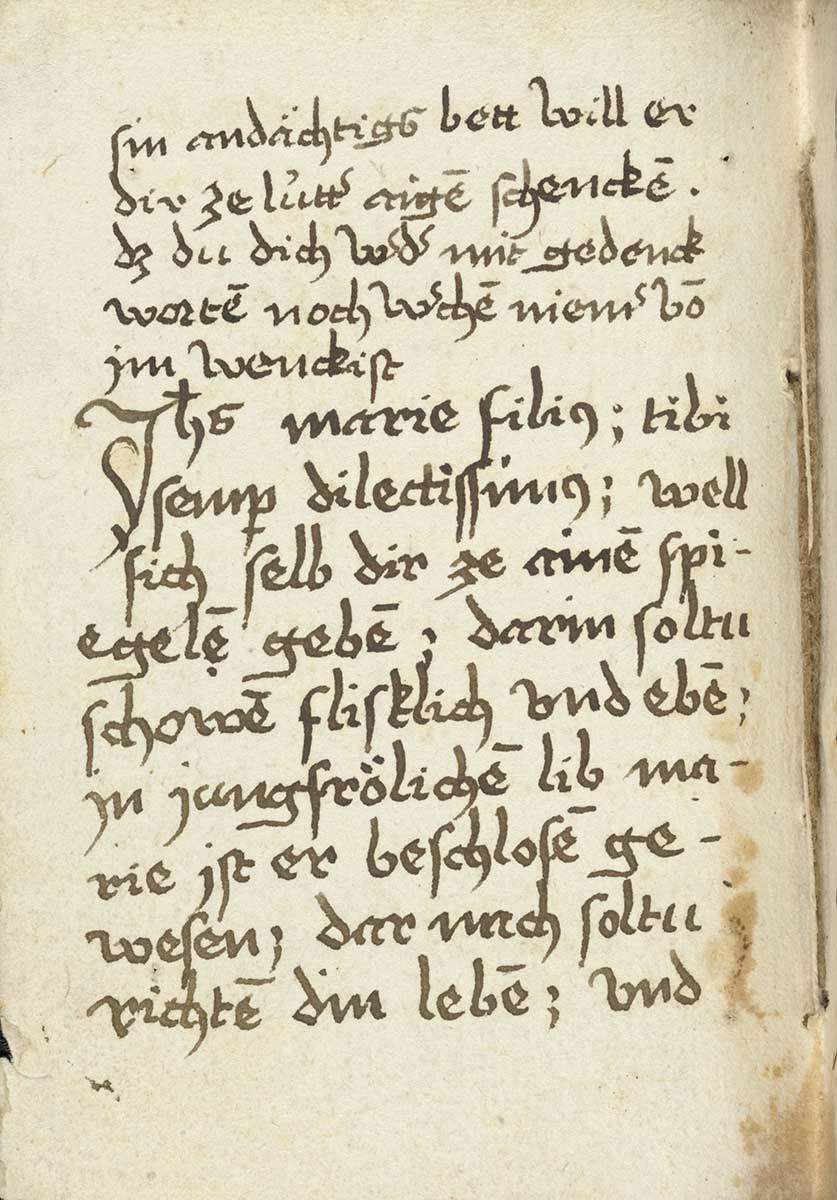 sin andächtigs bett will er
dir ze lutt aigē schenckē .
dz du dich wd mit gedenck
wortē noch wchē niem vō
im wenckist
Jhs marie filiꝰ ; tibi
semꝑ dilectissimꝰ ; well
sich selb dir ze ainē spi-
egelē gebē ; darin soltu
schowē flisklich vnd ebē ;
jn jungfrölichē lib ma-
rie ist er beschlosē ge-
wesen ; dar nach soltu
richtē din lebē ; vnd